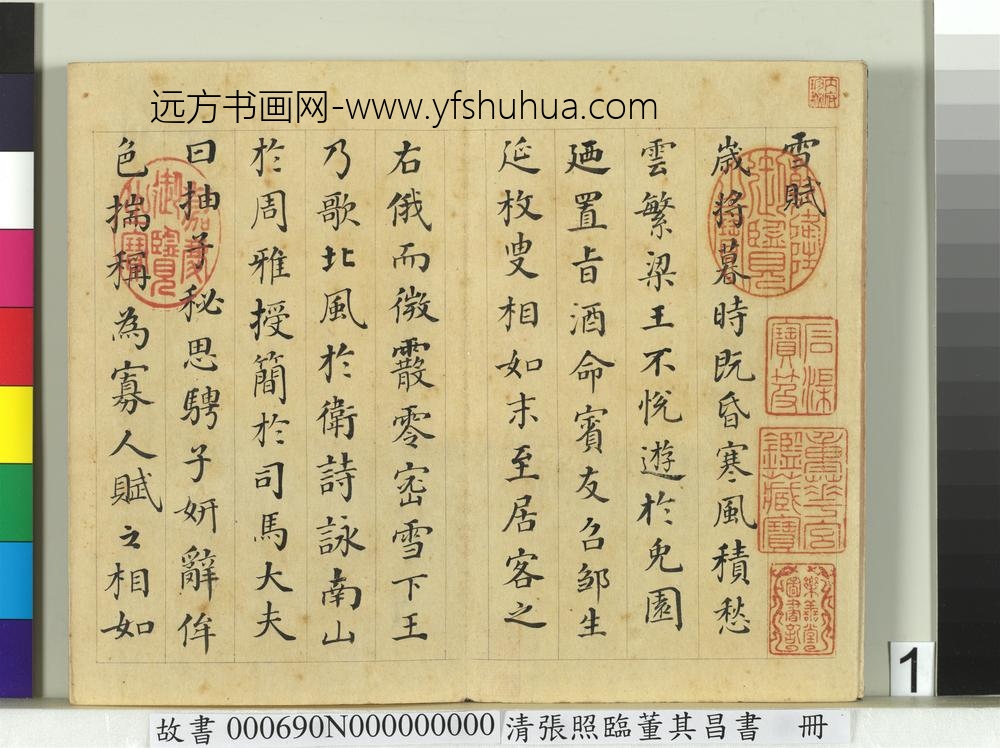 远方书画网-www.yfshuhua.com
雪賦
歲將暮時既昏寒風積愁
雲繁梁王不悅遊於兔園
廼置旨酒命賓友召鄒生
延枚叟相如末至居客之
右俄而微霰零密雪下王
乃歌北風於衛詩詠南山
於周雅授簡於司馬大夫
曰抽子秘思騁子妍辭侔
色揣稱為寡人賦之相如
石渠
寶笈
重華宮
鑑藏寶
樂善堂
圖書記
1
故書 000690N000000000 清張照臨董其昌書 冊